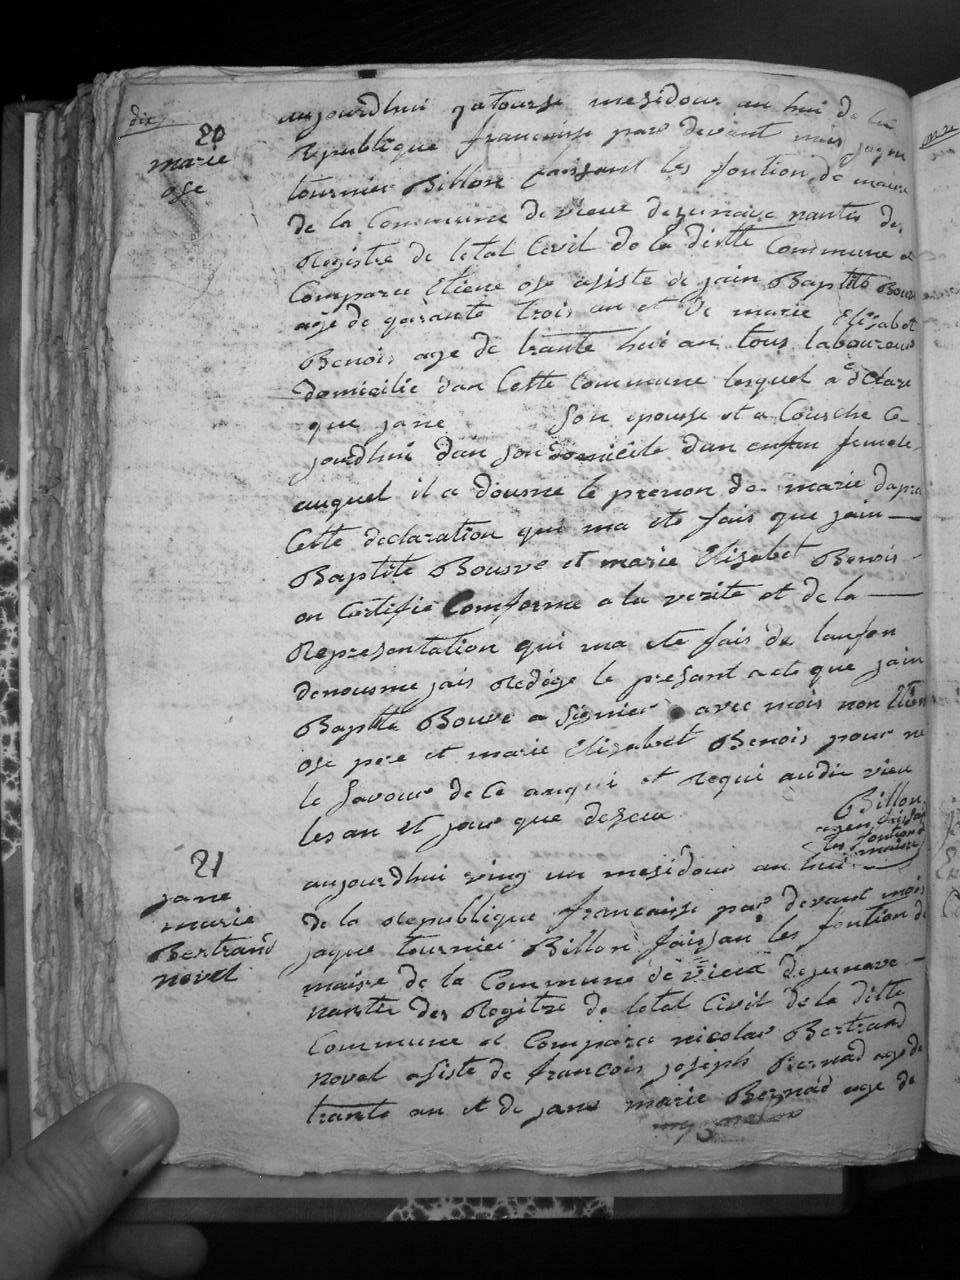 dix
20
marie
ose
aujourdhui qatourse mesidour an hui de la
republique francaise par devant mois jaque
tournier Billon faissant les fontion de maire
de la Commune de vieux dezunave nantis des
Registre de letal Civil de la ditte Commune et
Comparu Etiene ose asiste de jain Baptite Bouve
age de qarante trois an et de marie Elisabet
Benois age de trante hui an tous laboureur
domicilie dan Cette Commune lesquel a declare
que jane son epousse et a Cousche Ce
jourdhui dan son domicile dun enfan femele
auquel il a dousne le prenon de marie dapra
Cette declaration qui ma ete fais que jain
Baptite Bouve et marie Elizabet Benois
on Certifie Comforme a la verite et de la
Representation qui ma ete fais de lanfon
denousme jais Redege le present acte que jain
Baptite Bouve a signier avec mois non Etien
ose pere et marie Elizabet Benois pour ne
le savoir de Ce anqui et Requi audit vieu
les an et jour que deseu
Billon
les fontion
maire
21
jane
marie
Bertrand
novel
aujourdhui ving un mesidour an hui
de la Republique francaise par devant mois
jaque tournier Billon faissan les fontion de
maire de la Commune de vieu dezunave
nantis des Registre de letal Civil de la ditte
Commune et Comparu nicolas Bertrand
novel asiste de francois joseph Bernad age de
trante an et de jane marie Bernad age de